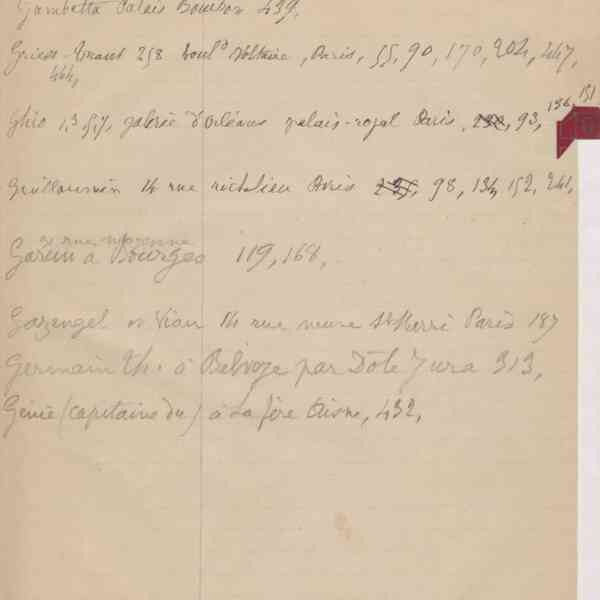 Gambetta Palais Bourbon 439.
Griess-Traut 258 bould Voltaire, Paris, 55, 90, 170, 204, 447,
444,
136, 151
Ghio 1,3,5,7, galerie d'Orléans palais-royal Paris, 93,
Guillaumin 14 rue richelieu Paris 98, 134, 152, 241,
31 rue moyenne
Garun à Bourges 119, 168,
Gazengel 14 rue neuve St Merri Paris 187
Germain th. à Belvoye par Dole Jura 313,
Génie (capitaine du) à La fère Aisne, 432,